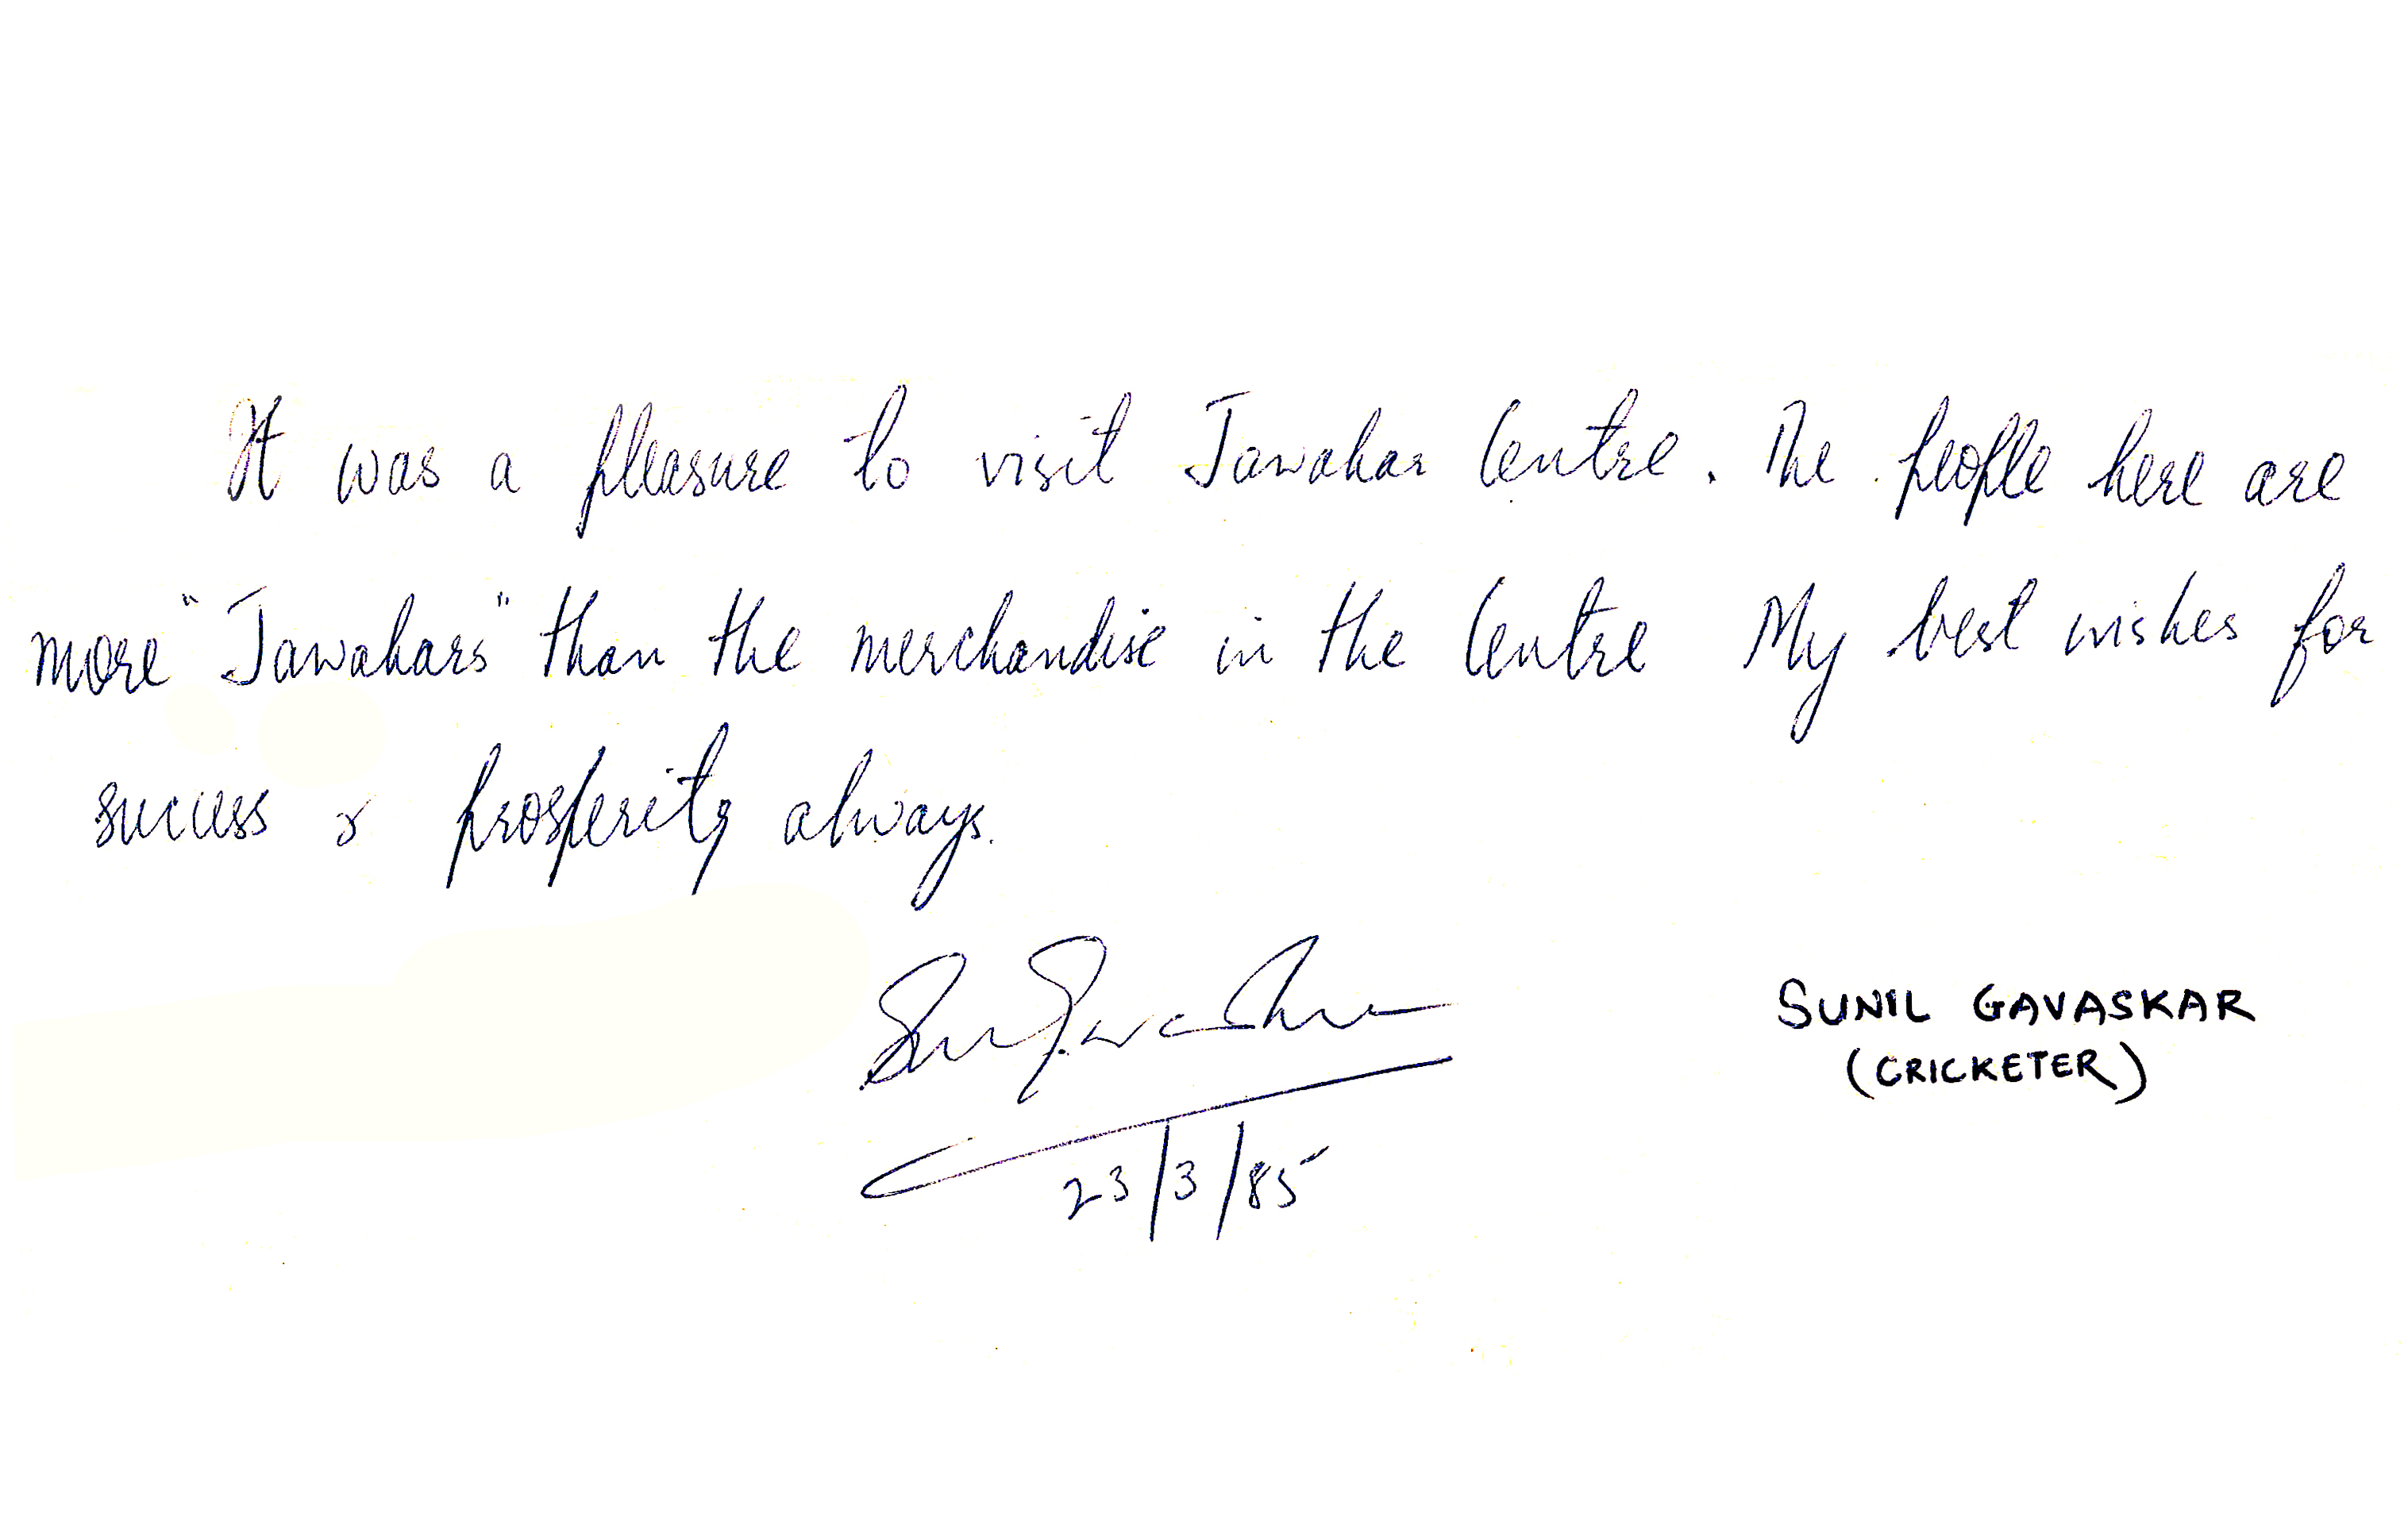 It was a pleasure to visit Jawahar Centre. The people here are
more "Jawahars" than the merchandise in the Centre My best wishes for
success & prosperity always.
SUNIL GAVASKAR
(CRICKETER)
23/3/85